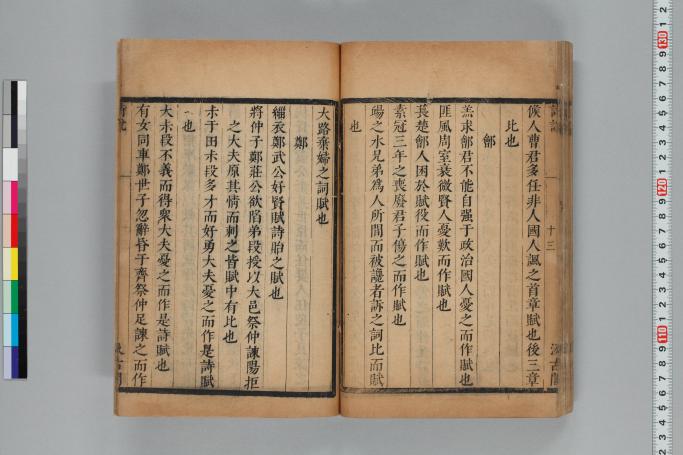 候人曹君多任非人國人諷之首章賦也後三章
比也
鄶
羔求鄶君不能自强于政治國人憂之而作賦也
匪風周室衰微賢人憂歎而作賦也
萇楚鄶人困於賦役而作賦也
素冠三年之喪廢君子傷之而作賦也
揚之水兄弟爲人所間而被讒者訴之詞比而賦
也
十三
大路棄婦之詞賦也
鄭
緇衣鄭武公好賢賦詩胎之賦也
將仲子鄭莊公欲陷弟段授以大邑祭仲諫陽拒
之大夫原其情而刺之皆賦中有比也
未于田未段多才而好勇大夫憂之而作是詩賦
也
大未段不義而得衆大夫憂之而作是詩賦也
有女同車鄭世子忽辭昏于齊祭仲足諫之而作